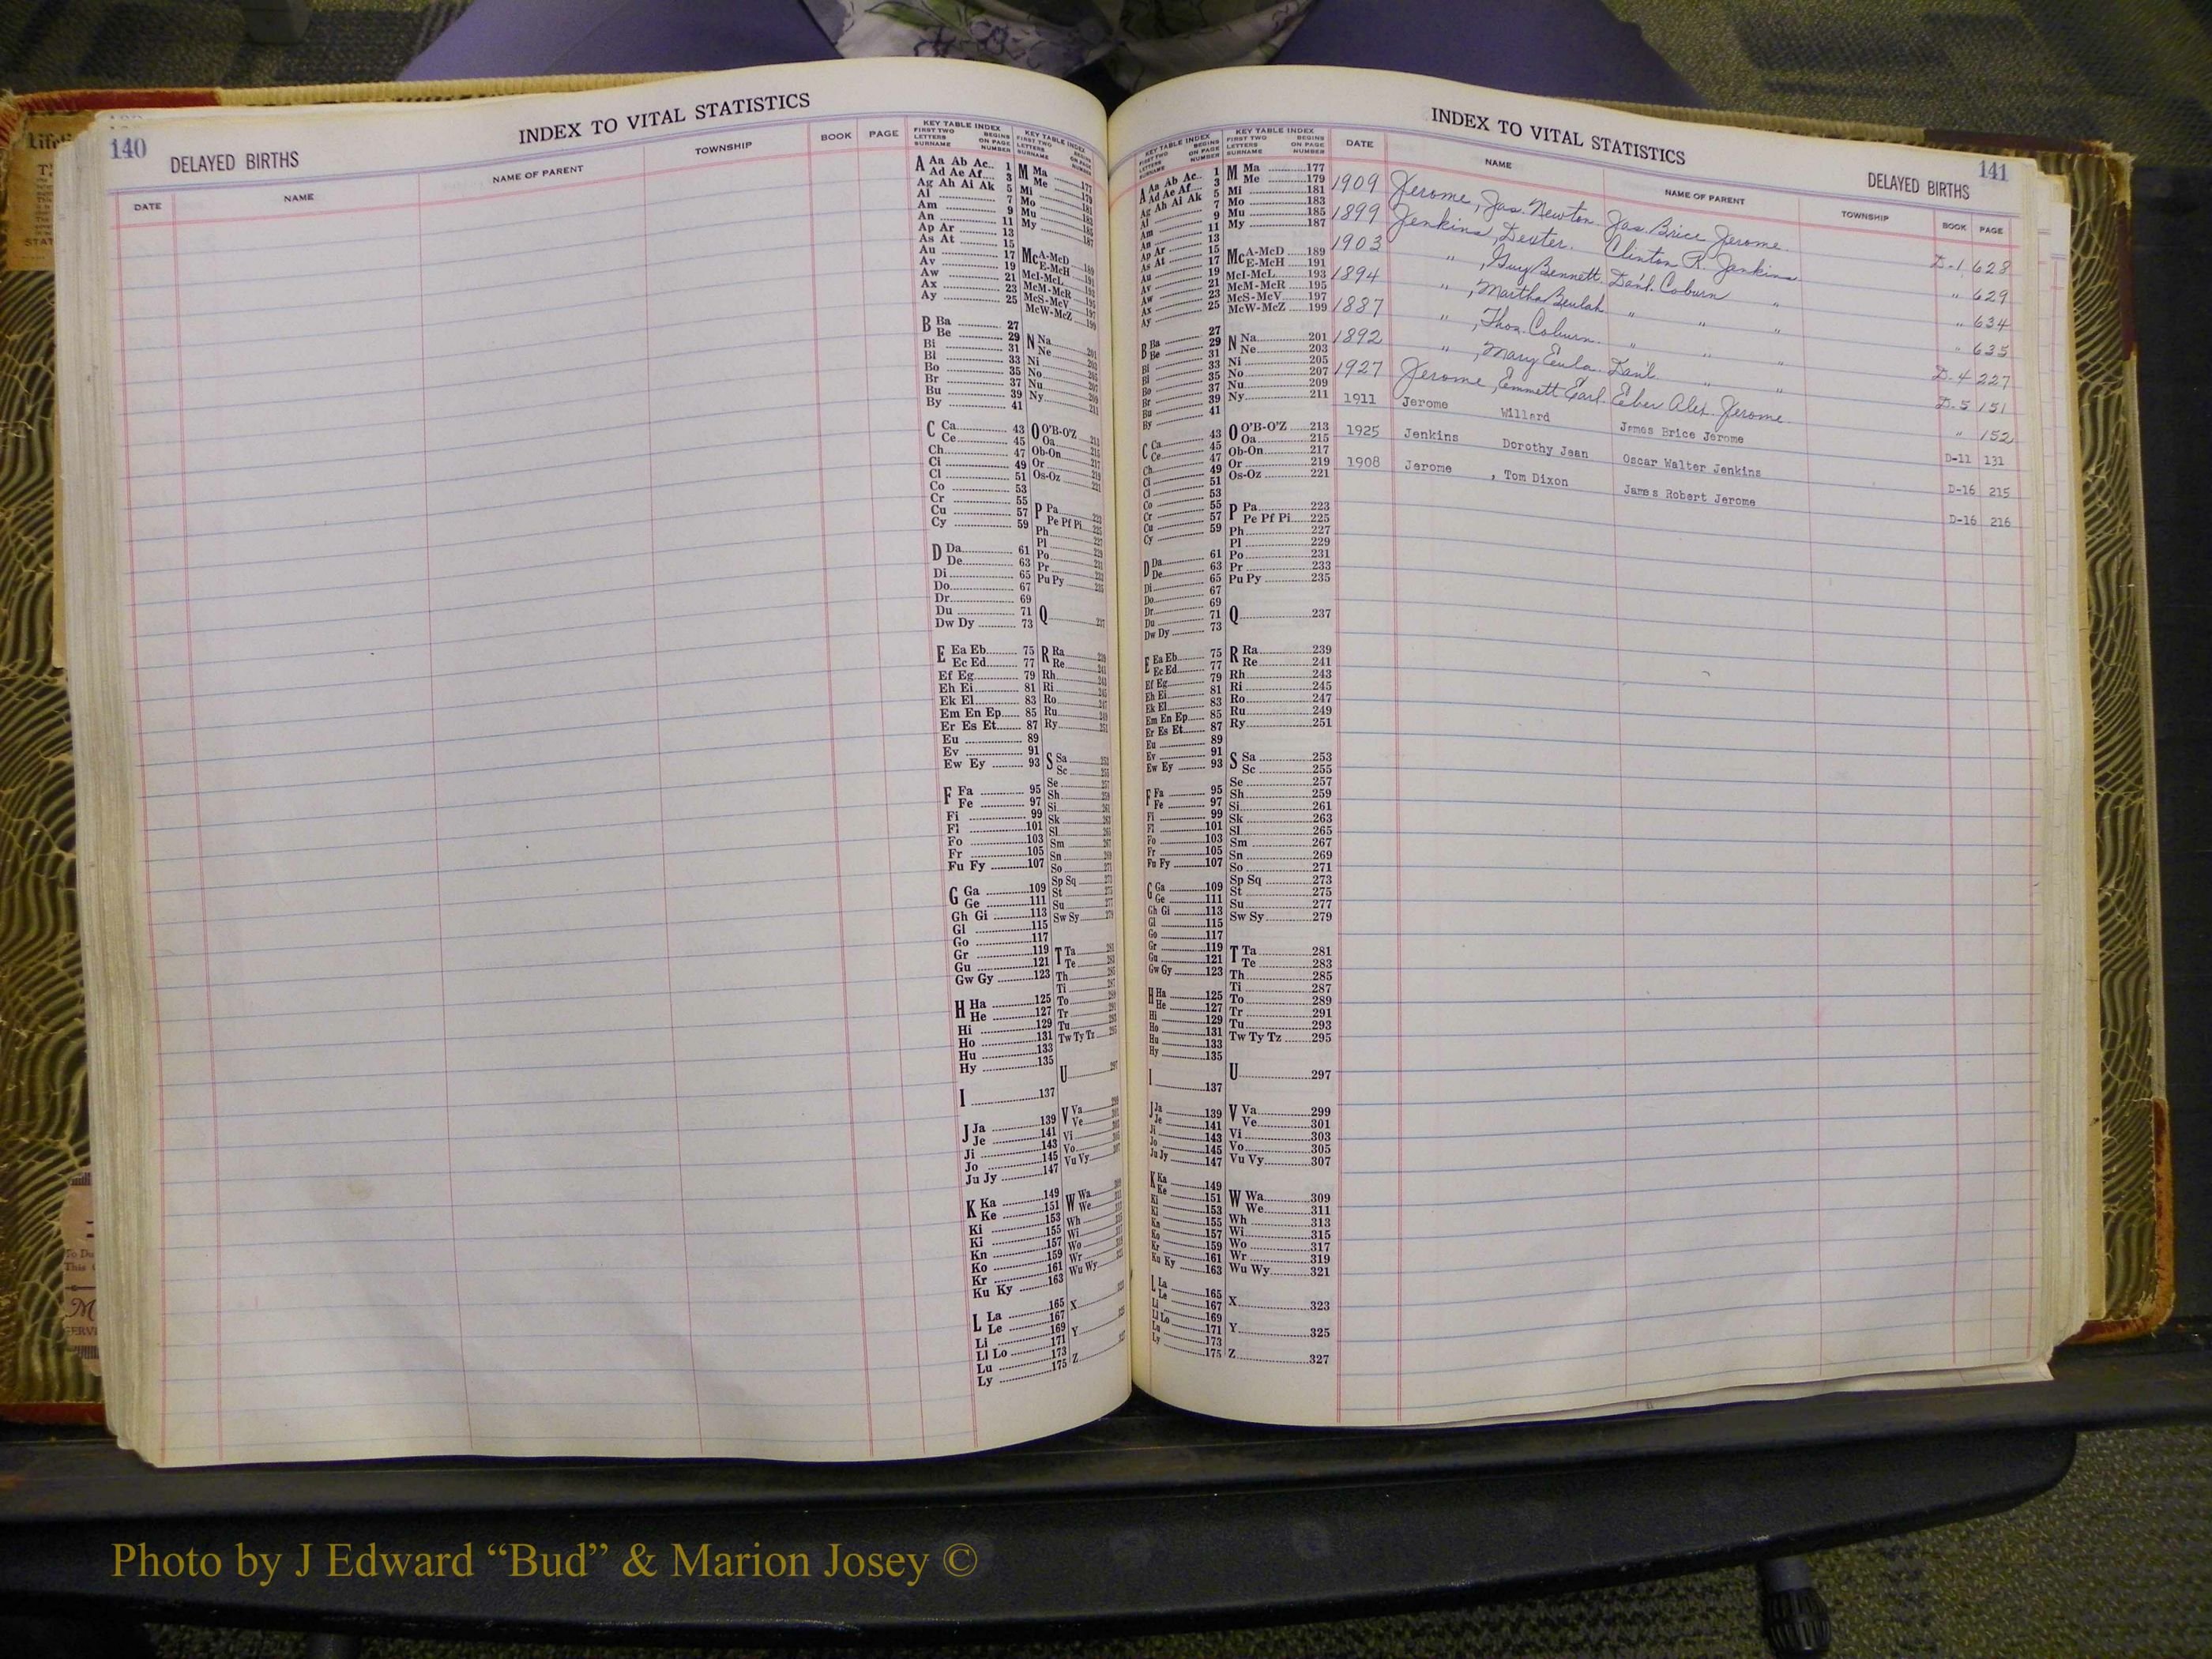 140
DELAYED BIRTHS
INDEX TO VITAL STATISTICS
DATE NAME NAME OF PARENT TOWNSHIP BOOK PAGE
KEY TABLE INDEX
FIRST TWO LETTERS SURNAME BEGINS ON PAGE NUMBER
A Aa Ab Ac 1
Ad Ae Af 3
Ag Ah Ai Ak 5
Al 7
Am 9
An 11
Ap Ar 13
As At 15
Au 17
Av 19
Aw 21
Ax 23
Ay 25
B Ba 27
Be 29
Bi 31
Bl 33
Bo 35
Br 37
Bu 39
By 41
C Ca 43
Ce 45
Ch 47
Ci 49
Cl 51
Co 53
Cr 55
Cu 57
Cy 59
D Da 61
De 63
Di 65
Do 67
Dr 69
Du 71
Dw Dy 73
E Ea Eb 75
Ec Ed 77
Ef Eg 79
Eh Ei 81
Ek El 83
Em En Ep 85
Er Es Et 87
Eu 89
Ev 91
Ew Ey 93
F Fa 95
Fe 97
Fi 99
Fl 101
Fo 103
Fr 105
Fu Fy 107
G Ga 109
Ge 111
Gh Gi 113
Gl 115
Go 117
Gr 119
Gu 121
Gw Gy 123
H Ha 125
He 127
Hi 129
Ho 131
Hu 133
Hy 135
I 137
J Ja 139
Je 141
Ji 143
Jo 145
Ju Jy 147
K Ka 149
Ke 151
Ki 153
Ki 155
Kn 157
Ko 159
Kr 161
Ku Ky 163
L La 165
Le 167
Li 169
Ll Lo 171
Lu 173
Ly 175
INDEX TO VITAL STATISTICS
DELAYED BIRTHS
141
KEY TABLE INDEX
FIRST TWO LETTERS SURNAME BEGINS ON PAGE NUMBER
M Ma 177
Me 179
Mi 181
Mo 183
Mu 185
My 187
Mc A-McD 189
E-McH 191
McI-McL 193
McM-McR 195
McS-McV 197
McW-McZ 199
N Na 201
Ne 203
Ni 205
No 207
Nu 209
Ny 211
O O'B-O'Z 213
Oa 215
Ob-On 217
Or 219
Os-Oz 221
P Pa 223
Pe Pf Pi 225
Ph 227
Pl 229
Po 231
Pr 233
Pu Py 235
Q 237
R Ra 239
Re 241
Rh 243
Ri 245
Ro 247
Ru 249
Ry 251
S Sa 253
Sc 255
Se 257
Sh 259
Si 261
Sk 263
Sl 265
Sm 267
Sn 269
So 271
Sp Sq 273
St 275
Su 277
Sw Sy 279
T Ta 281
Te 283
Th 285
Ti 287
To 289
Tr 291
Tu 293
Tw Ty Tz 295
U 297
V Va 299
Ve 301
Vi 303
Vo 305
Vu Vy 307
W Wa 309
We 311
Wh 313
Wi 315
Wo 317
Wr 319
Wu Wy 321
X 323
Y 325
Z 327
DATE NAME NAME OF PARENT TOWNSHIP BOOK PAGE
1909 Jerome, Jas. Newton Jas. Brice Jerome D-1 628
1899 Jenkins, Dexter. Clinton R. Jenkins " 629
1903 " , Guy Bennett. Dan'l. Coburn " " 634
1894 " , Martha Beulah " " " " 635
1887 " , Thos. Coburn. " " " D-4 227
1892 " , Mary Eula. Dan'l. " " D-5 151
1927 Jerome, Emmett Earl. Eber Alex. Jerome. " 152
1911 Jerome Willard James Brice Jerome D-11 131
1925 Jenkins Dorothy Jean Oscar Walter Jenkins D-16 215
1908 Jerome , Tom Dixon James Robert Jerome D-16 216
Photo by J Edward “Bud” & Marion Josey ©